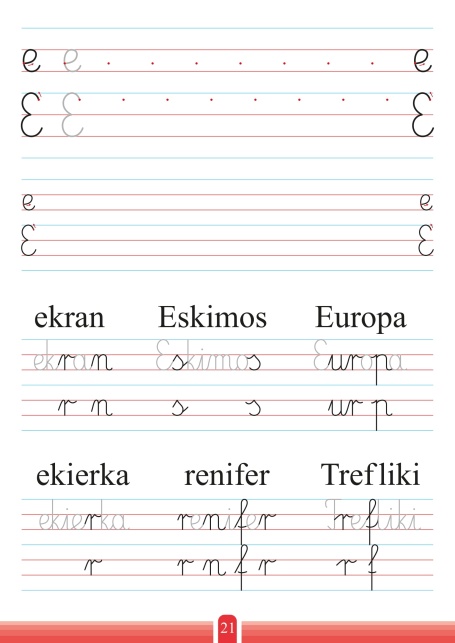 e e e
E E E
e e
E E
ekran Eskimos Europa
ekran Eskimos Europa
r n s s ur p
ekierka renifer Trefliki
ekierka renifer Trefliki
r r n f r r f
21